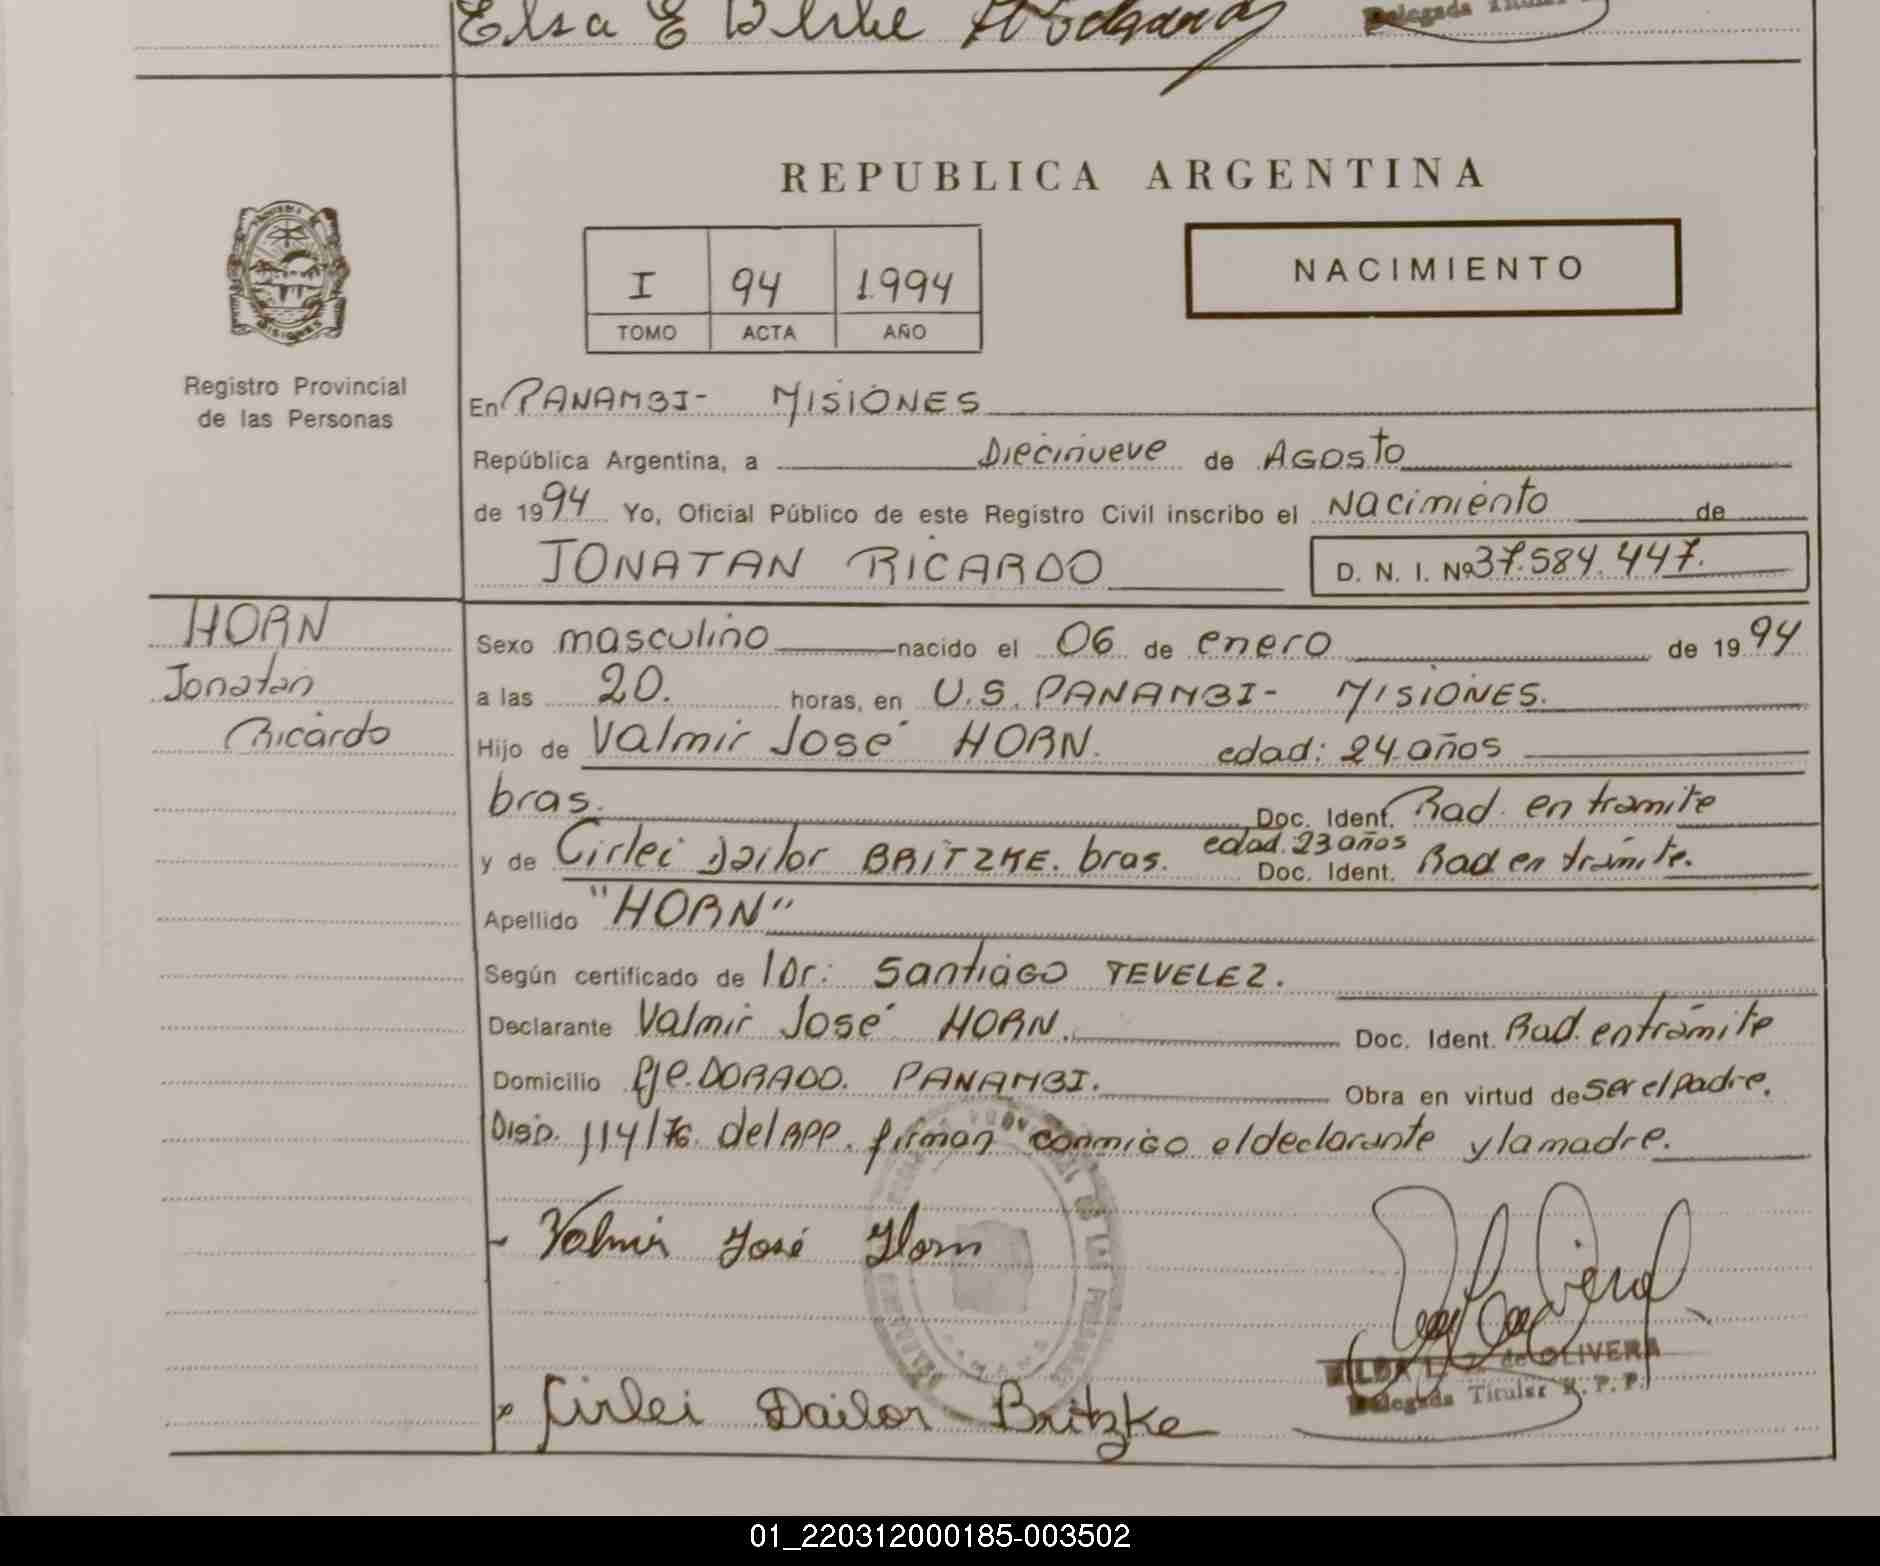 Elsa E
Delegada Titular
REPUBLICA ARGENTINA
MISIONES
I 94 1994
TOMO ACTA AÑO
NACIMIENTO
Registro Provincial
de las Personas
En PANAMBI- MISIONES
República Argentina, a Diecinueve de AGOSTO
de 1994 Yo, Oficial Público de este Registro Civil inscribo el Nacimiento de
JONATAN RICARDO D. N. I. Nº 37.584.447.
HORN
Jonatan
Ricardo
Sexo masculino nacido el 06 de enero de 1994
a las 20. horas, en U.S. PANAMBI- MISIONES.
Hijo de Valmir José HORN. edad: 24 años
bras. Doc. Ident. Rad. en tramite
y de Cirlei Dailor BRITZKE. bras. edad. 23 años Doc. Ident. Rad en trámite.
Apellido "HORN"
Según certificado de Dr: Santiago TEVELEZ.
Declarante Valmir José HORN. Doc. Ident. Rad. en trámite
Domicilio Pje. DORADO. PANAMBI. Obra en virtud de ser el padre.
Disp. 114/76. del RPP. firman conmigo el declarante y la madre.
- Valmir José Horn
de OLIVERA
Delegada Titular R.P.P.
Cirlei Dailor Britzke
01_220312000185-003502